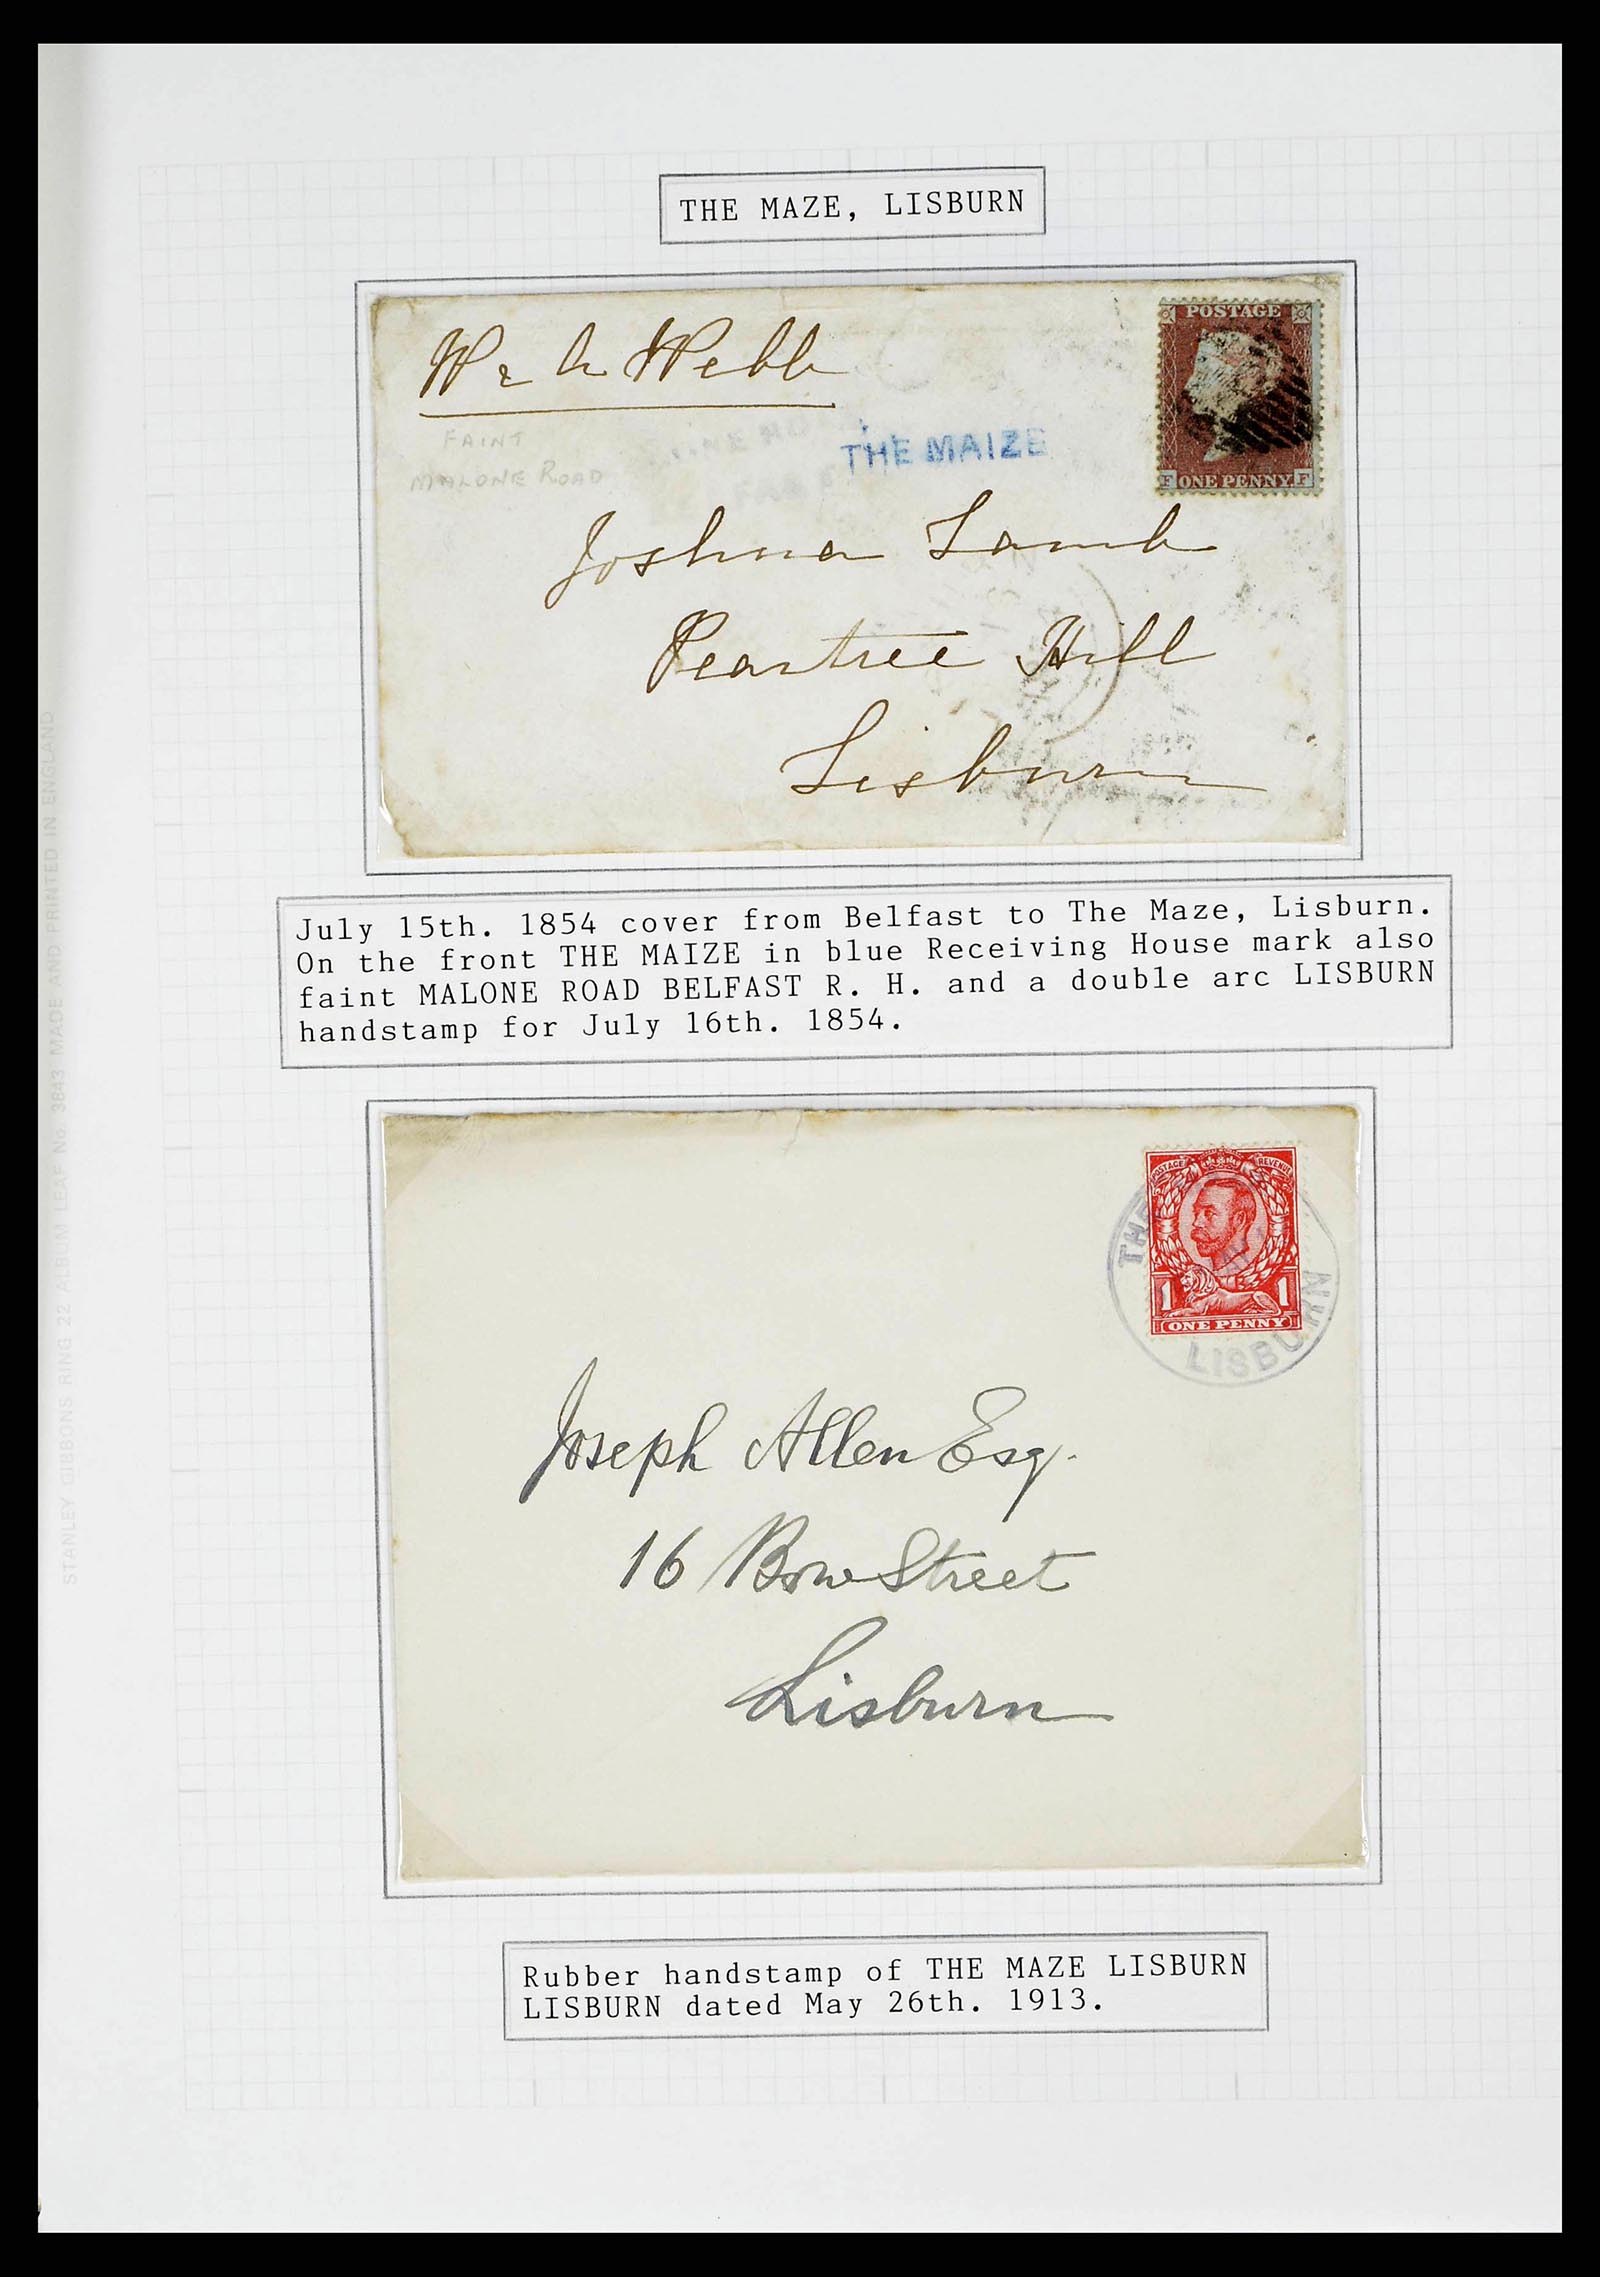 THE MAZE, LISBURN
Webb
POSTAGE
FAINT
MALONE ROAD
THE MAIZE
F ONE PENNY F
Joshua Lamb
Peartree Hill
Lisburn
July 15th. 1854 cover from Belfast to The Maze, Lisburn.
On the front THE MAIZE in blue Receiving House mark also
faint MALONE ROAD BELFAST R. H. and a double arc LISBURN
handstamp for July 16th. 1854.
POSTAGE REVENUE
THE
1 1
ONE PENNY
LISBURN
Joseph Allen Esq.
16 Bow Street
Lisburn
Rubber handstamp of THE MAZE LISBURN
LISBURN dated May 26th. 1913.
STANLEY GIBBONS RING 22 ALBUM LEAF No. 3843 MADE AND PRINTED IN ENGLAND